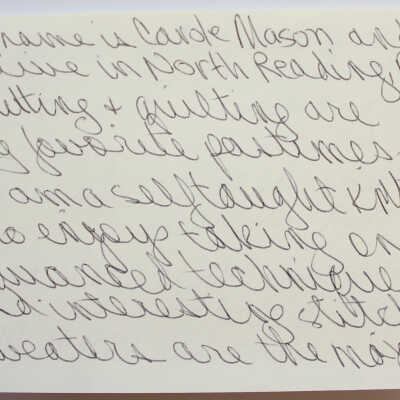 name is Carole Mason and
live in North Reading,
itting + quilting are
y favorite pastimes.
am a self taught knit
o enjoys taking on
dvanced technique
nd interesting stitch
weaters are the ma